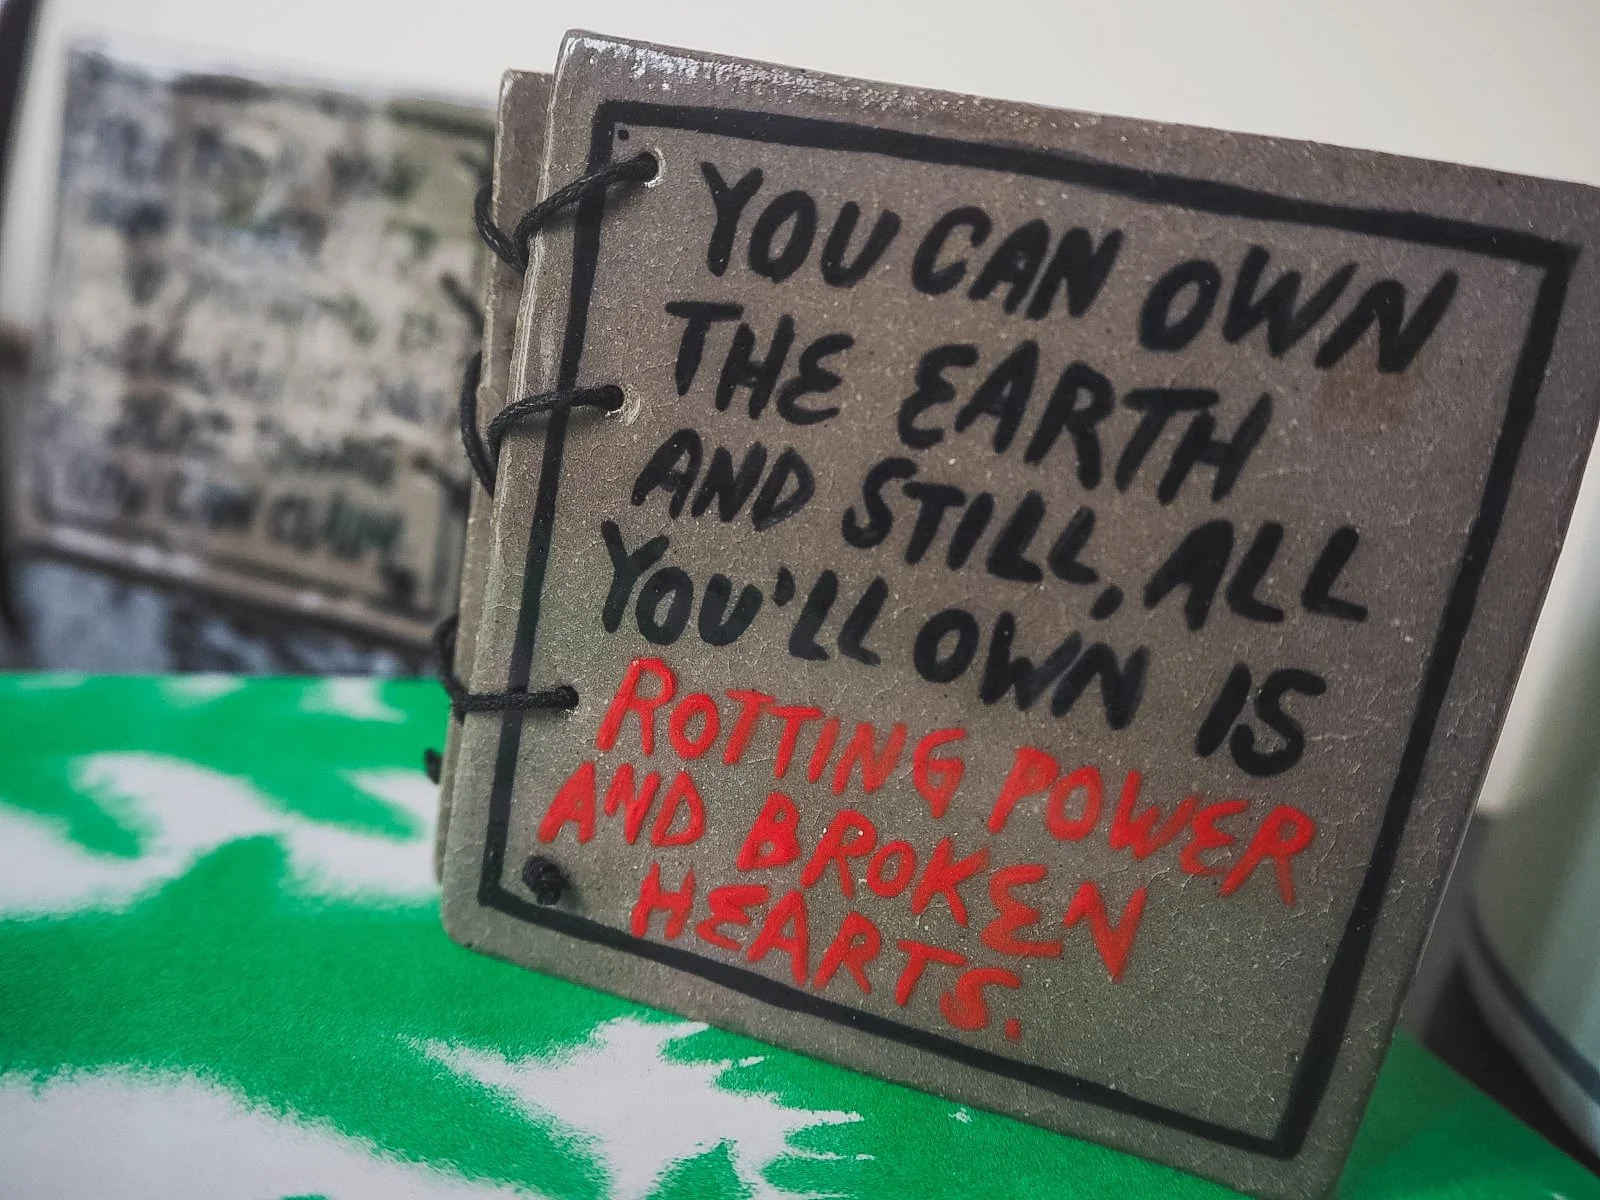 YOU CAN OWN
THE EARTH
AND STILL, ALL
YOU'LL OWN IS
ROTTING POWER
AND BROKEN
HEARTS.